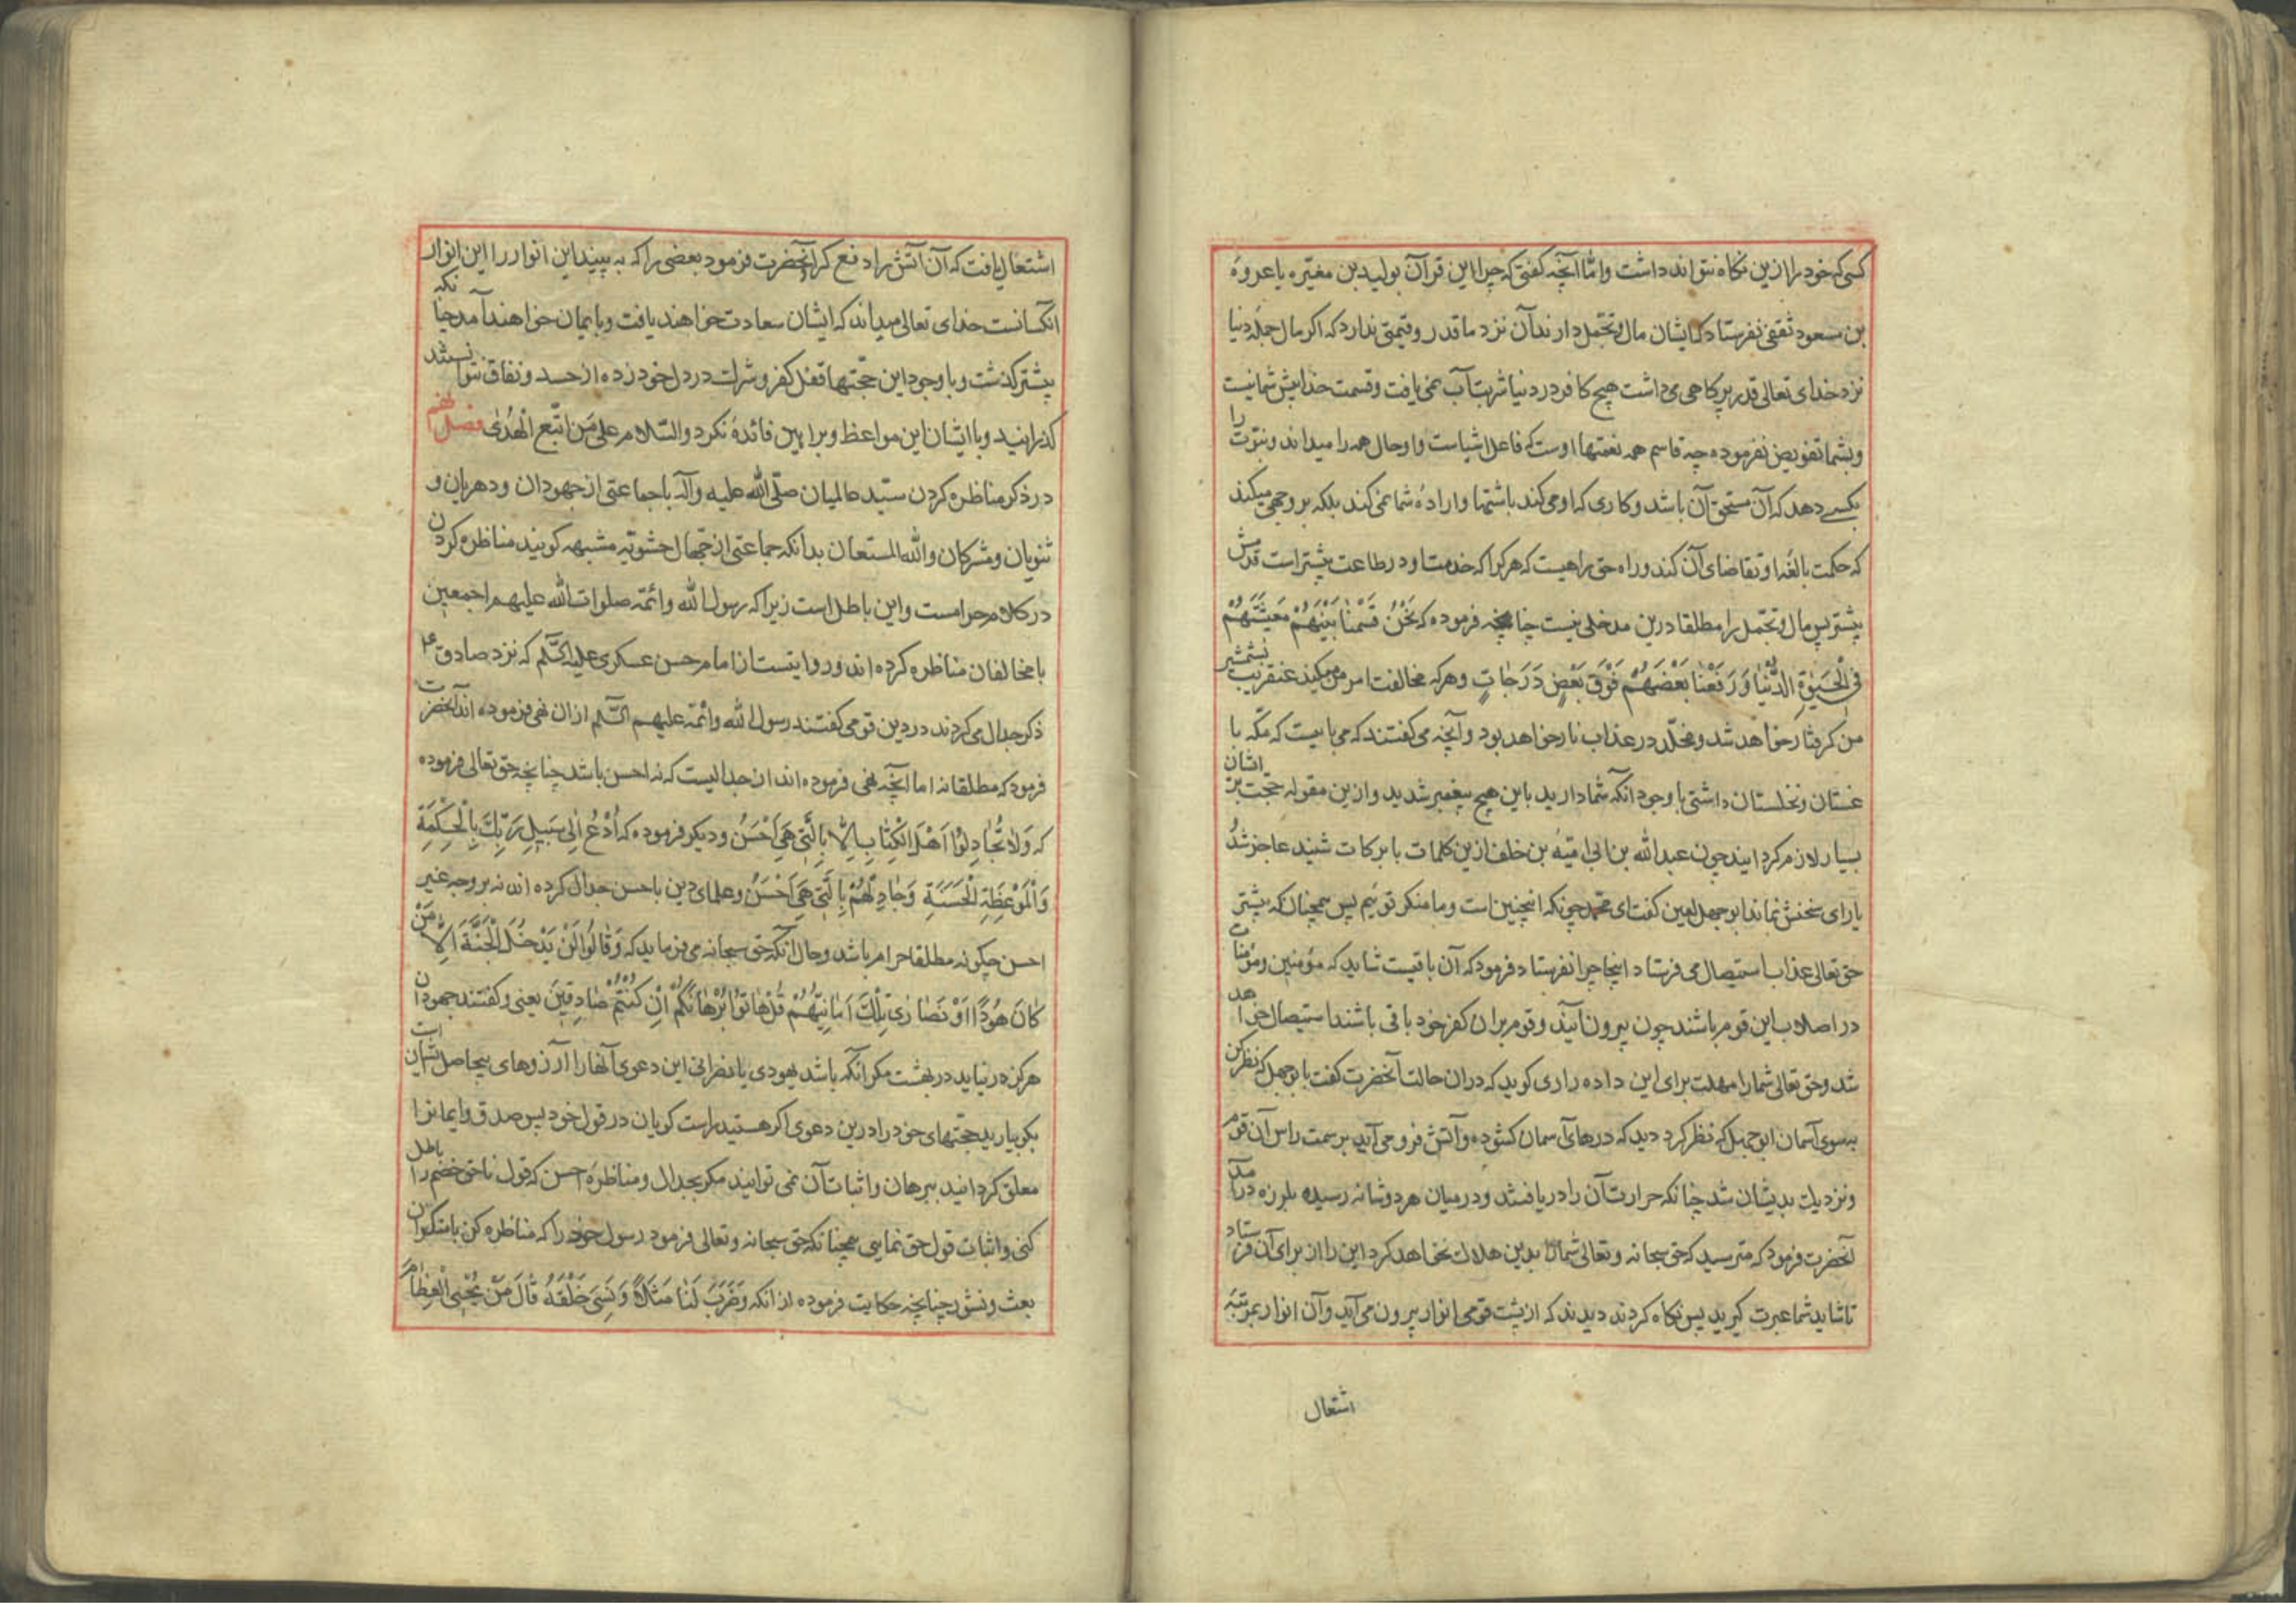 کسی که خود را ازین نکاه نتواند داشت واما آنچه کفتی که چرا این قرآن بولید بن مغیره یا عروهٔ
بن مسعود ثقفی نفرستاد که ایشان مال وتجمل دارند آن نزد ما قدر وقیمتی ندارد که اکر مال جمله دنیا
نزد خدای تعالی قدر پر کاهی می داشت هیچ کافر در دنیا شربت آب نمی یافت وقسمت خدا پیش شما نیست
وبشما تفویض نفرموده چه قاسم همه نعمتها اوست که فاعل اشیاست واو حال همه را میداند ونبوّت را
بکسی دهد که آن مستحق آن باشد وکاری که او می کند باشتها وارادهٔ شما نمی کند بلکه بر وجهی میکند
که حکمت بالغهٔ او تقاضای آن کند وراه حق راهیست که هر کرا که خدمت او در طاعت بیشتر است قدرش
بیشتر پس مال وتجمل را مطلقا درین مدخلی نیست چنانچه فرموده که نَحْنُ قَسَمْنٰا بَیْنَهُمْ مَعیشَتَهُمْ
فِی الْحَیٰوةِ الدُّنْیٰا وَ رَفَعْنٰا بَعْضَهُمْ فَوْقَ بَعْضٍ دَرَجٰاتٍ وهر که مخالفت امر من میکند عنقریب بشمشیر
من کرفتار خواهد شد ومخلّد در عذاب نار خواهد بود وآنچه می کفتند که می بایست که مکّه با
عنستان ونخلستان داشتی با وجود آنکه شما دارید باین هیچ پیغمبر شدید وازین مقوله حجت بر ایشان
بسیار لازم کردانید چون عبد الله بن ابی امیّه بن خلف ازین کلمات با برکات شنید عاجز شد
یارای سخنش نماند ابو جهل لعین کفت ای محمد چونکه اینچنین است وما منکر توئیم پس همچنان که پیشتر
حق تعالی عذاب استیصال می فرستاد اینجا چرا نفرستاد فرمود که آن باقیست شاید که مؤمنین ومؤمنات
در اصلاب این قوم باشند چون بیرون آیند وقوم بر ان کفر خود باقی باشند استیصال خواهد
شد وحق تعالی شما را مهلت برای این داده راوی کوید که دران حالت آنحضرت کفت با بو جهل که نظر کن
بسوی آسمان ابو جهل که نظر کرد دید که درهای آسمان کشوده وآتش فرو می آید بر سمت راس آن قوم
ونزدیک بدیشان شد چنانکه حرارت آن را دریافتند ودر میان هر دو شانه رسیده بلرزه در آمد
آنحضرت فرمود که مترسید که حق سبحانه وتعالی شما را بدین هلاک نخواهد کرد این را از برای آن فرستاد
تا شاید شما عبرت کیرید پس نکاه کردند دیدند که از پشت قومی انوار بیرون می آید وآن انوار بمرتبهٔ
اشتعال
اشتعال یافت که آن آتش را دفع کرد آنحضرت فرمود بعضی را که به بیند این انوار را این انوار
آنکسانست خدای تعالی میداند که ایشان سعادت خواهند یافت وبایمان خواهند آمد چنانکه
پیشتر کذشت وبا وجود این حجّتها قفل کفر وشرک در دل خود زده از حسد ونفاق نتوانستند
کذرانید وبا ایشان این مواعظ وبراهین فائدهٔ نکرد والسّلام علی مَن اتّبع الْهُدٰی فصل
در ذکر مناظره کردن سیّد عالمیان صلّی الله علیه وآله با جماعتی از جهودان ودهریان و
ثنویان ومشرکان والله المستعان بدانکه جماعتی از جهّال حشویّه مشبهه کویند مناظره کردن
در کلام حرامست واین باطل است زیرا که رسول الله وائمّه صلوات الله علیهم اجمعین
با مخالفان مناظره کرده اند وروایتست از امام حسن عسکری علیه السّلم که نزد صادق ع
ذکر جدال می کردند در دین قومی کفتند رسول الله وائمّه علیهم السّلم ازان نهی فرموده اند آنحضرت
فرمود که مطلقا نه اما آنچه نهی فرموده اند ان جدالیست که نه احسن باشد چنانچه حق تعالی فرموده
که وَلاٰ تُجٰادِلُوا اَهْلَ الْکِتٰابِ اِلّٰا بِالَّتی هِیَ اَحْسَنُ ودیکر فرموده که اُدْعُ اِلٰی سَبیلِ رَبِّکَ بِالْحِکْمَةِ
وَالْمَوْعِظَةِ الْحَسَنَةِ وَجٰادِلْهُمْ بِالَّتی هِیَ اَحْسَنُ وعلمای دین باحسن جدال کرده اند نه بر وجه غیر
احسن چکونه مطلقا حرام باشد وحال آنکه حق سبحانه می فرماید که وَقٰالُوا لَنْ یَدْخُلَ الْجَنَّةَ اِلّٰا مَنْ
کٰانَ هُودًا اَوْ نَصٰاریٰ تِلْکَ اَمٰانِیُّهُمْ قُلْ هٰاتُوا بُرْهٰانَکُمْ اِنْ کُنْتُمْ صٰادِقینَ یعنی وکفتند جهودان
هرکز در نیاید در بهشت مکر آنکه باشد یهودی یا نصرانی این دعوی آنها را آرزوهای بیحاصل ایشان است
بکو بیارید حجّتهای خود را درین دعوی اکر هستید راست کویان در قول خود پس صدق وایمانرا
معلق کردانید ببرهان واثبات آن نمی توانید مکر بجدال ومناظرهٔ احسن که قول ناحق خصم را باطل
کنی واثبات قول حق نمایی همچنانکه حق سبحانه وتعالی فرمود رسول خود را که مناظره کن با منکران
بعث ونشور چنانچه حکایت فرموده از انکه وَضَرَبَ لَنٰا مَثَلًا وَنَسِیَ خَلْقَهُ قٰالَ مَنْ یُحْیِی الْعِظٰامَ